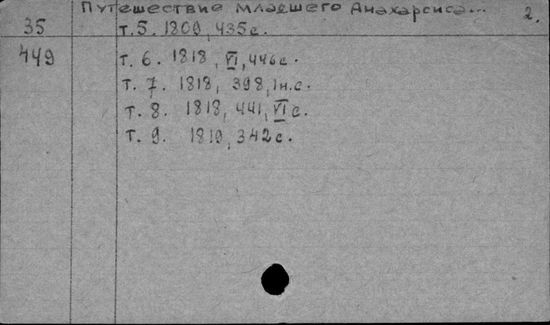 Путешествие младшего Анахарсиса... 2.
35 т.5. 1809, 435с.
449 т. 6. 1818, VI, 446с.
т. 7. 1818, 398, 1н.с.
т. 8. 1818, 441, VI с.
т. 9. 1819, 342с.